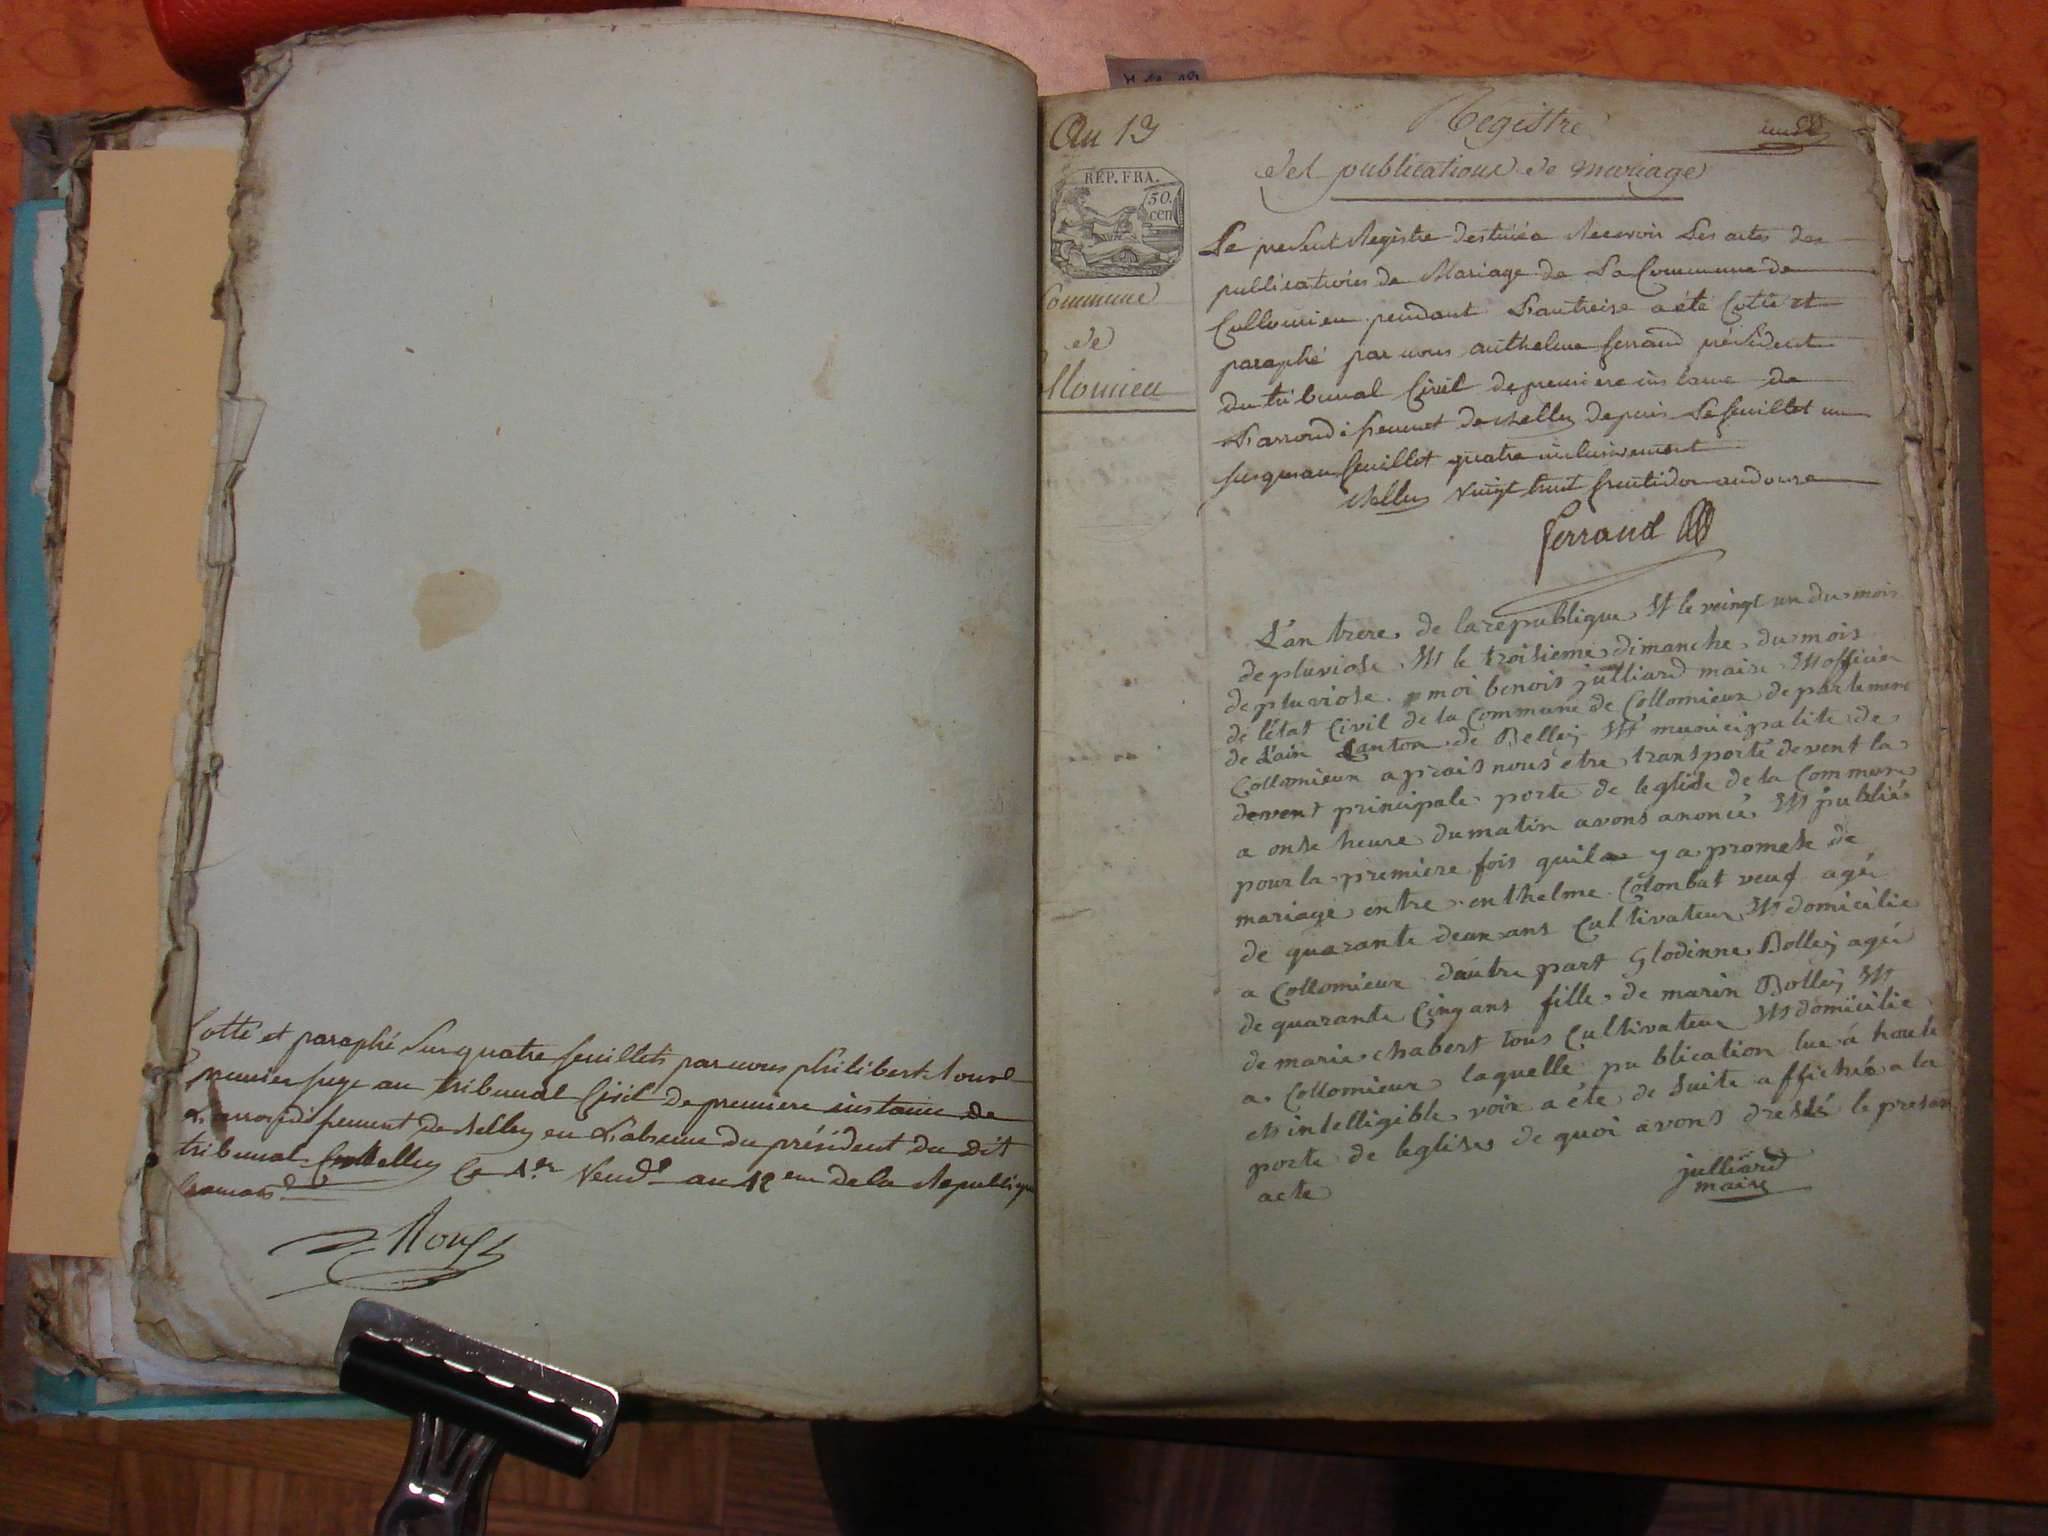 Cotté et paraphé Sur quatre feuillets par nous philibert
premier juge au tribunal Civil de premiere instance de
L'arrondissement de Belley en L'absence du président du dit
tribunal Belley Ce 1er Vend.e an 12 eme de la Republique
An 13
REP. FRA.
50.
cen
Commune
de
ollomieu
Registre
des publications de mariage
Le present Registre destiné a Recevoir Les actes des
publications de Mariage de La Commune de
Collomieu pendant L'an treise a été Cotté et
paraphé par nous anthelme ferrand président
du tribunal Civil de premiere instance de
L'arrondissement de Belley depuis Le feuillet un
jusqu'au feuillet quatre inclusivement
Belley vingt huit fructidor an douze
ferrand
L'an treze de la republique Et le veingt un du mois
de pluviose Et le troisieme dimanche du mois
de pluviose moi benois julliard maire Et officier
de l'état Civil de la Commune de Collomieux departement
de L'ain Canton de Belley Et municipalite de
Collomieux aprais nous etre transporté devent la
devent principale porte de leglise de la Commune
a onse heure du matin avons anoncé Et publié
pour la premiere fois quil y a promese de
mariage entre enthelme Colonbat veuf agé
de quarante deux ans Cultivateur Et domicilie
a Collomieux dautre part Glodinne Bolley agée
de quarante Cinq ans fille de marin Bolley Et
de marie chabert tous Cultivateur Et domicilie
a Collomieux laquelle publication lue á haute
et intelligible voix a été de Suite affichée a la
porte de leglise de quoi avons dressé le present
acte
julliard
maire